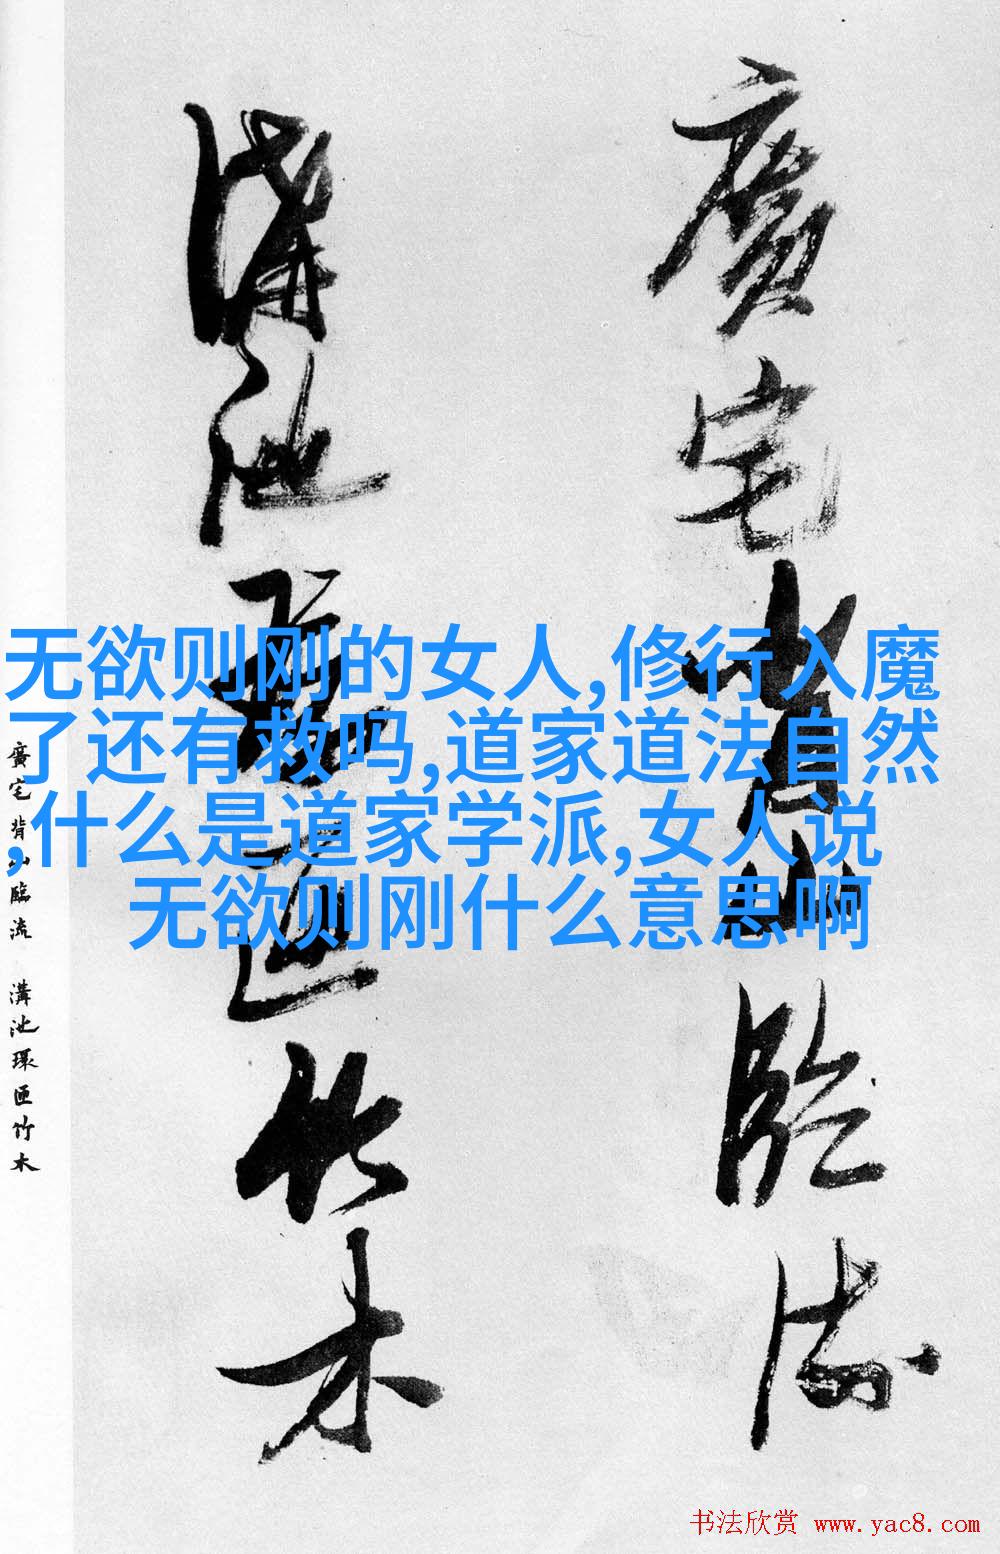 廣宅背山臨流
溝池環匝竹木
無欲则刚的女人,修行入魔
了还有救吗,道家道法自然
,什么是道家学派,女人说
无欲则刚什么意思啊
廣宅背山臨流 溝池環匝竹木
书法欣赏 www.yac8.com